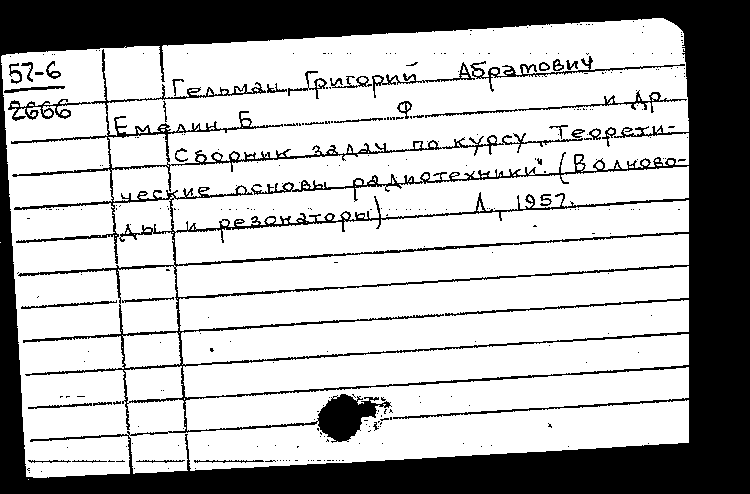 57-6
2666
Гельман, Григорий Абрамович
Емелин, Б Ф и др.
Сборник задач по курсу „Теорети-
ческие основы радиотехники". (Волново-
ды и резонаторы). Л., 1957.